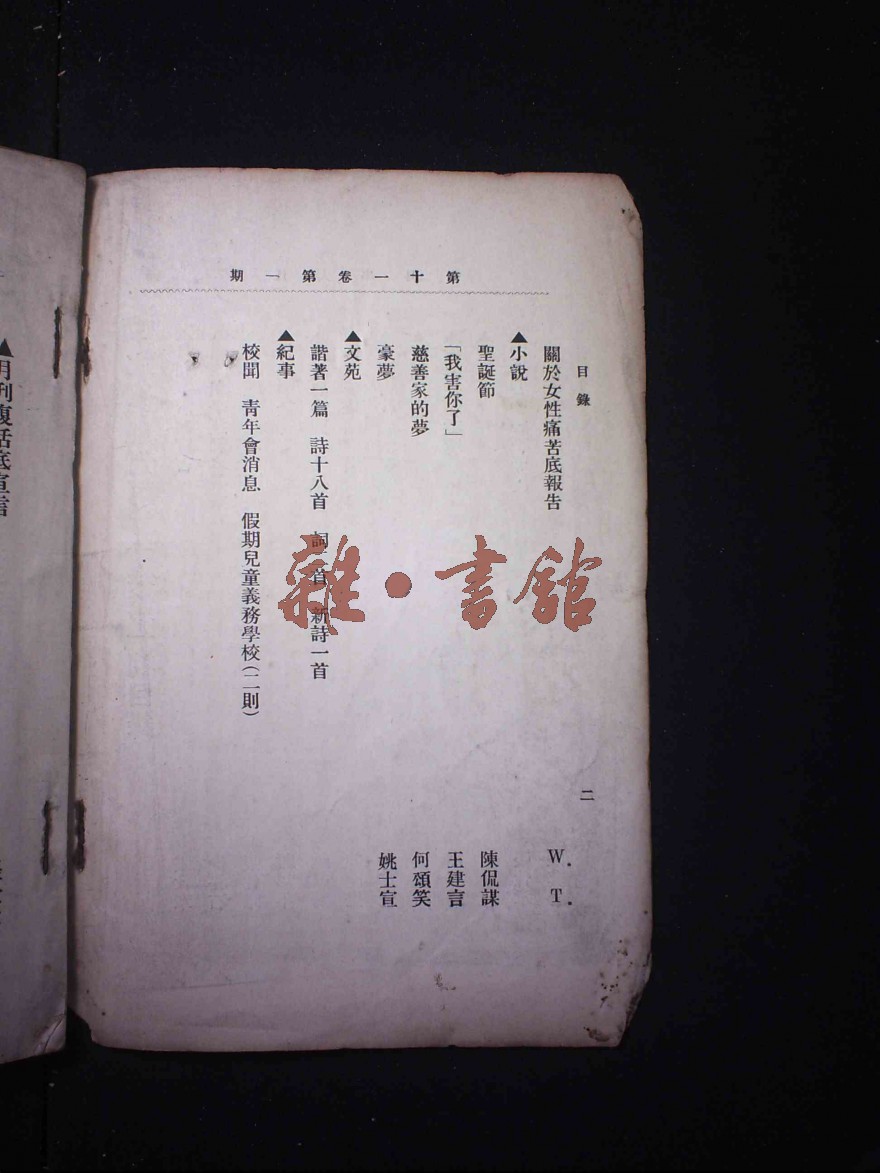 第十一卷第一期
目錄
二
關於女性痛苦底報告 W. T.
▲小說
聖誕節 陳侃謀
「我害你了」 王建言
慈善家的夢 何頌笑
豪夢 姚士宣
▲文苑
諧著一篇 詩十八首 詞 首 新詩一首
▲紀事
校聞 青年會消息 假期兒童義務學校(二則)
雜·書館
▲月刊復活底宣言